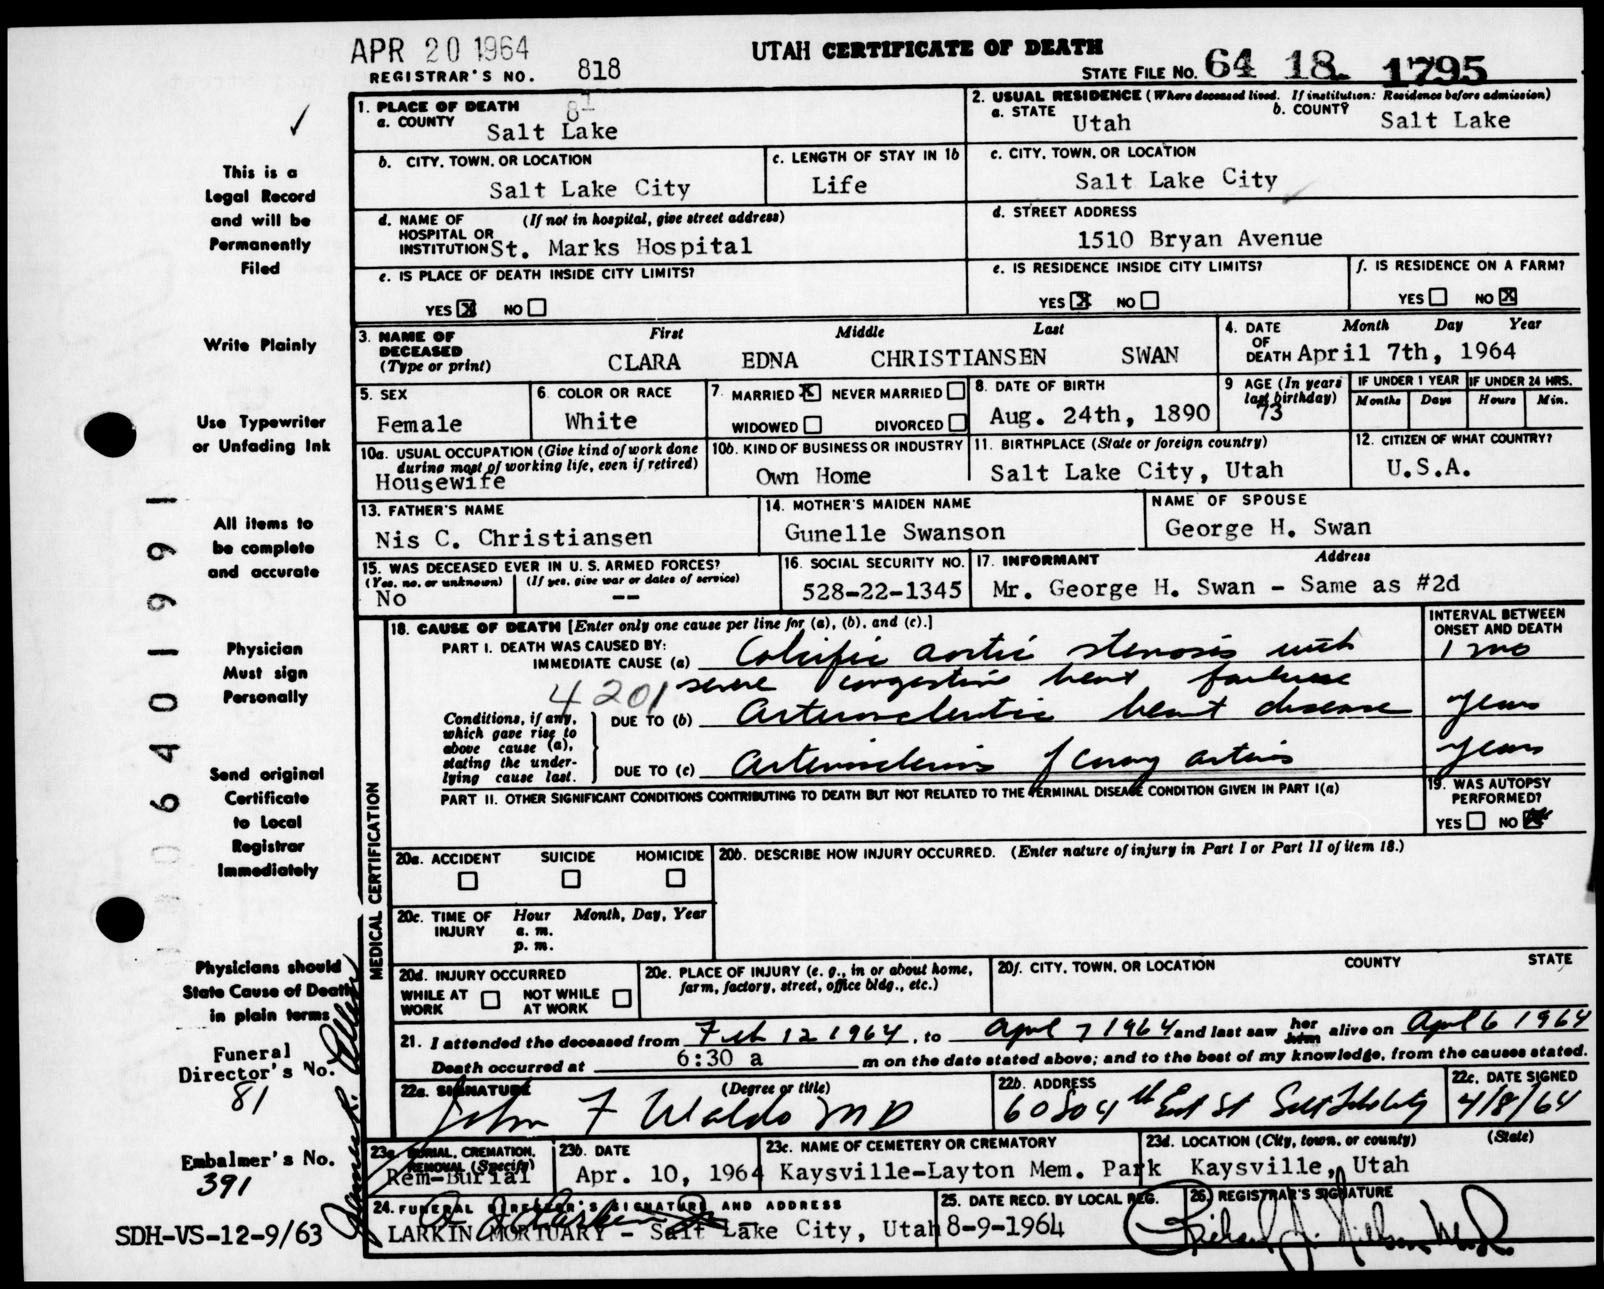 APR 20 1964
UTAH CERTIFICATE OF DEATH
REGISTRAR'S NO. 818
STATE FILE NO. 64 18 1795
1. PLACE OF DEATH
81
a. COUNTY
Salt Lake
2. USUAL RESIDENCE (Where deceased lived. If institution: Residence before admission)
a. STATE
Utah
b. COUNTY
Salt Lake
b. CITY, TOWN, OR LOCATION
Salt Lake City
c. LENGTH OF STAY IN 1b
Life
c. CITY, TOWN, OR LOCATION
Salt Lake City
d. NAME OF HOSPITAL OR INSTITUTION
(If not in hospital, give street address)
St. Marks Hospital
d. STREET ADDRESS
1510 Bryan Avenue
e. IS PLACE OF DEATH INSIDE CITY LIMITS?
YES X NO
e. IS RESIDENCE INSIDE CITY LIMITS?
YES X NO
f. IS RESIDENCE ON A FARM?
YES NO X
3. NAME OF DECEASED
(Type or print)
First Middle Last
CLARA EDNA CHRISTIANSEN SWAN
4. DATE OF DEATH
Month Day Year
April 7th, 1964
5. SEX
Female
6. COLOR OR RACE
White
7. MARRIED X NEVER MARRIED
WIDOWED DIVORCED
8. DATE OF BIRTH
Aug. 24th, 1890
9 AGE (In years last birthday)
73
IF UNDER 1 YEAR
Months Days
IF UNDER 24 HRS.
Hours Min.
10a. USUAL OCCUPATION (Give kind of work done
during most of working life, even if retired)
Housewife
10b. KIND OF BUSINESS OR INDUSTRY
Own Home
11. BIRTHPLACE (State or foreign country)
Salt Lake City, Utah
12. CITIZEN OF WHAT COUNTRY?
U.S.A.
13. FATHER'S NAME
Nis C. Christiansen
14. MOTHER'S MAIDEN NAME
Gunelle Swanson
NAME OF SPOUSE
George H. Swan
15. WAS DECEASED EVER IN U. S. ARMED FORCES?
(Yes, no, or unknown) (If yes, give war or dates of service)
No --
16. SOCIAL SECURITY NO.
528-22-1345
17. INFORMANT Address
Mr. George H. Swan - Same as #2d
MEDICAL CERTIFICATION
18. CAUSE OF DEATH [Enter only one cause per line for (a), (b), and (c).]
INTERVAL BETWEEN ONSET AND DEATH
PART I. DEATH WAS CAUSED BY:
IMMEDIATE CAUSE (a) Calcific aortic stenosis with
1 mo
severe congestive heart failure
4201
Conditions, if any, which gave rise to above cause (a), stating the underlying cause last.
DUE TO (b) Arteriosclerotic heart disease
years
DUE TO (c) Arteriosclerosis of coronary arteries
years
PART II. OTHER SIGNIFICANT CONDITIONS CONTRIBUTING TO DEATH BUT NOT RELATED TO THE TERMINAL DISEASE CONDITION GIVEN IN PART I(a)
19. WAS AUTOPSY PERFORMED?
YES NO X
20a. ACCIDENT SUICIDE HOMICIDE
20b. DESCRIBE HOW INJURY OCCURRED. (Enter nature of injury in Part I or Part II of item 18.)
20c. TIME OF INJURY
Hour Month, Day, Year
a. m.
p. m.
20d. INJURY OCCURRED
WHILE AT WORK NOT WHILE AT WORK
20e. PLACE OF INJURY (e. g., in or about home,
farm, factory, street, office bldg., etc.)
20f. CITY, TOWN, OR LOCATION COUNTY STATE
21. I attended the deceased from Feb 12 1964, to April 7 1964 and last saw her him alive on April 6 1964
Death occurred at 6:30 a m on the date stated above; and to the best of my knowledge, from the causes stated.
22a. SIGNATURE (Degree or title)
John F Waldo MD
22b. ADDRESS
60 So 4th East St Salt Lake City
22c. DATE SIGNED
4/8/64
23a. BURIAL, CREMATION, REMOVAL (Specify)
Rem-Burial
23b. DATE
Apr. 10, 1964
23c. NAME OF CEMETERY OR CREMATORY
Kaysville-Layton Mem. Park
23d. LOCATION (City, town, or county) (State)
Kaysville, Utah
24. FUNERAL DIRECTOR'S SIGNATURE AND ADDRESS
LARKIN MORTUARY - Salt Lake City, Utah
25. DATE RECD. BY LOCAL REG.
8-9-1964
26. REGISTRAR'S SIGNATURE
This is a
Legal Record
and will be
Permanently
Filed
Write Plainly
Use Typewriter
or Unfading Ink
All items to
be complete
and accurate
Physician
Must sign
Personally
Send original
Certificate
to Local
Registrar
Immediately
Physicians should
State Cause of Death
in plain terms
Funeral
Director's No.
81
Embalmer's No.
391
SDH-VS-12-9/63